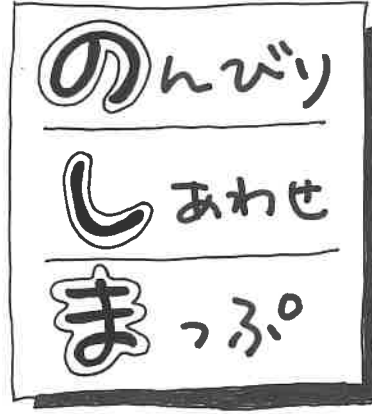 のんびり
しあわせ
まっぷ